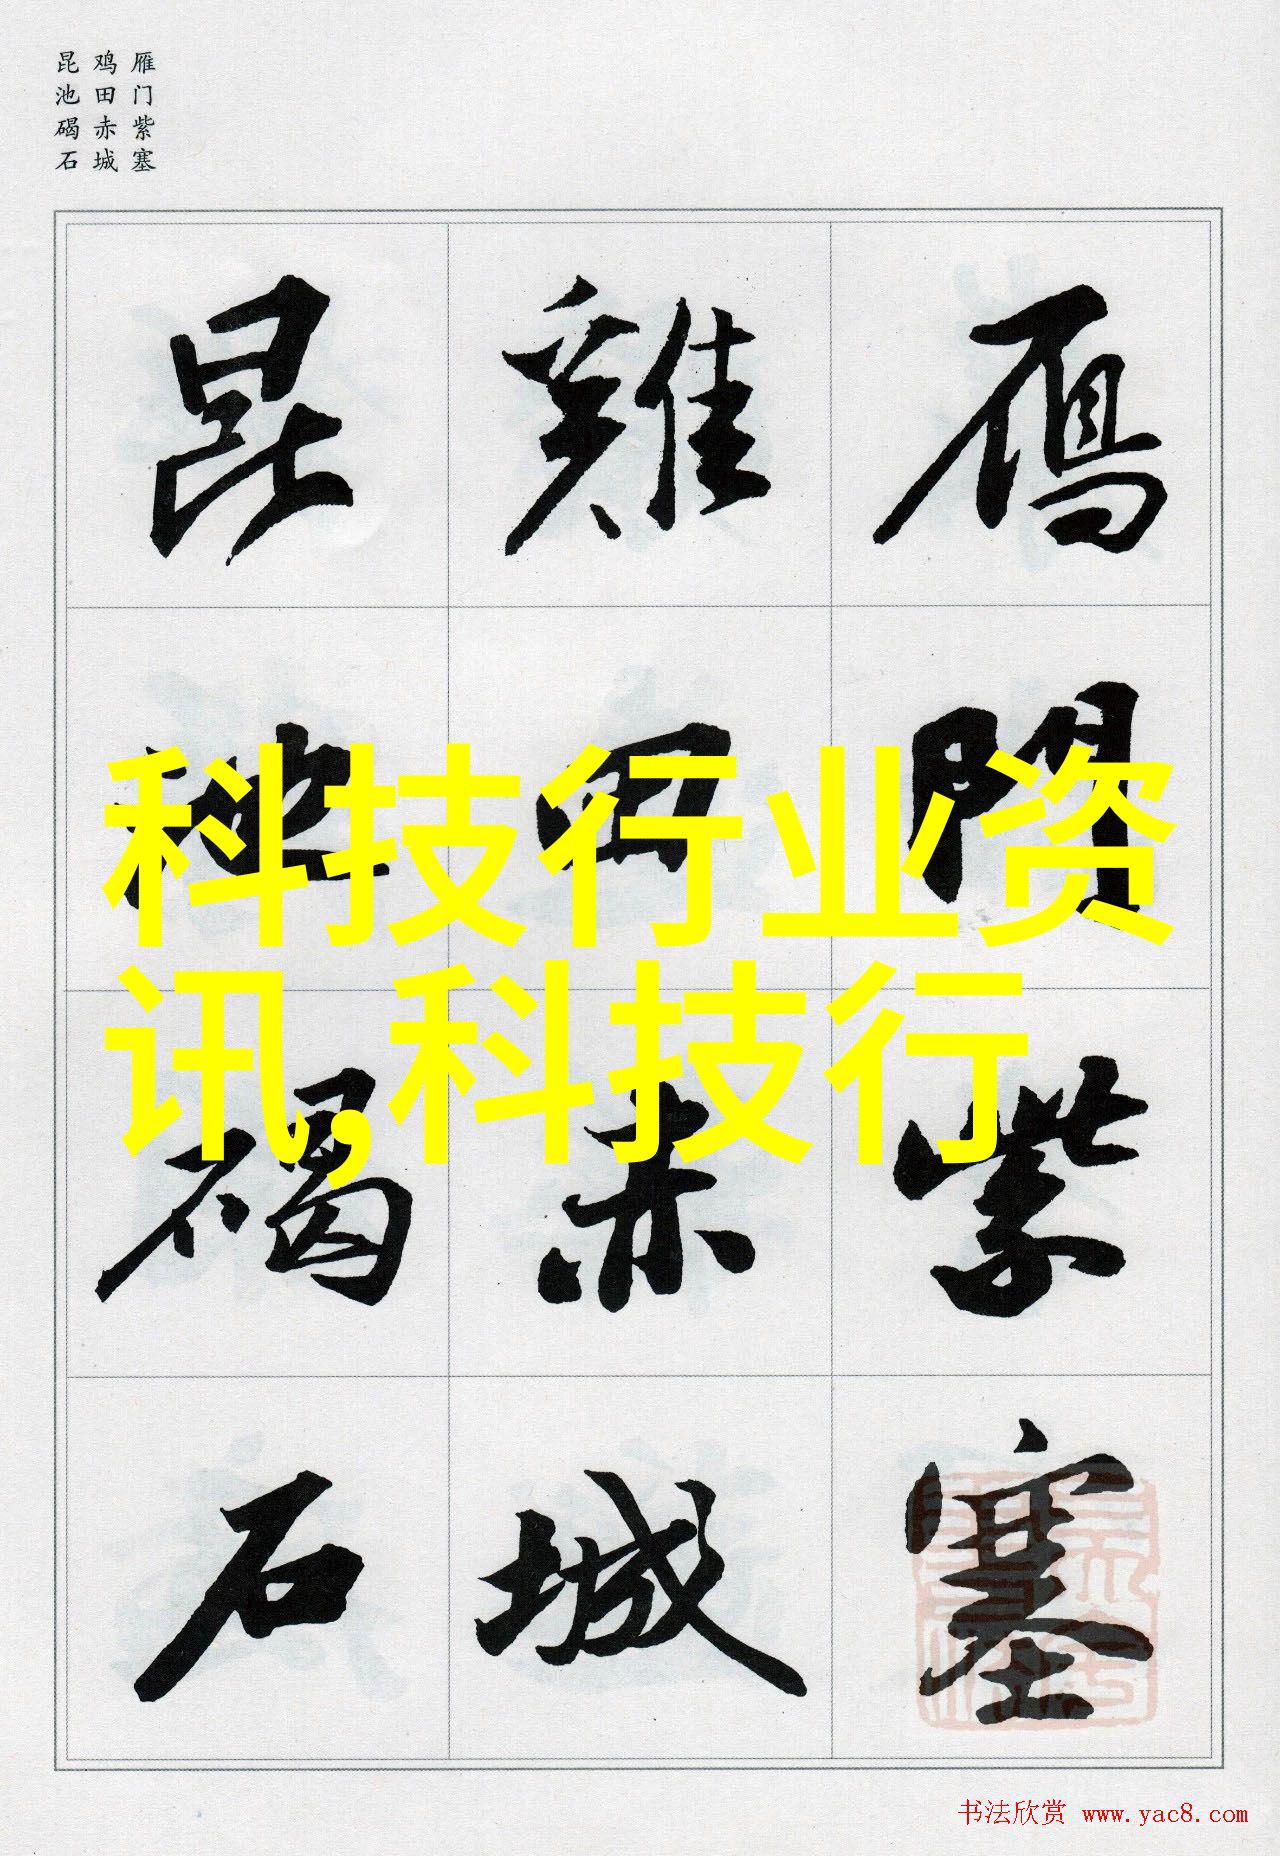 雁门紫塞
鸡田赤城
昆池碣石
雁門紫塞
雞田赤城
昆池碣石
科技行业资
讯,科技行
书法欣赏 www.yac8.com